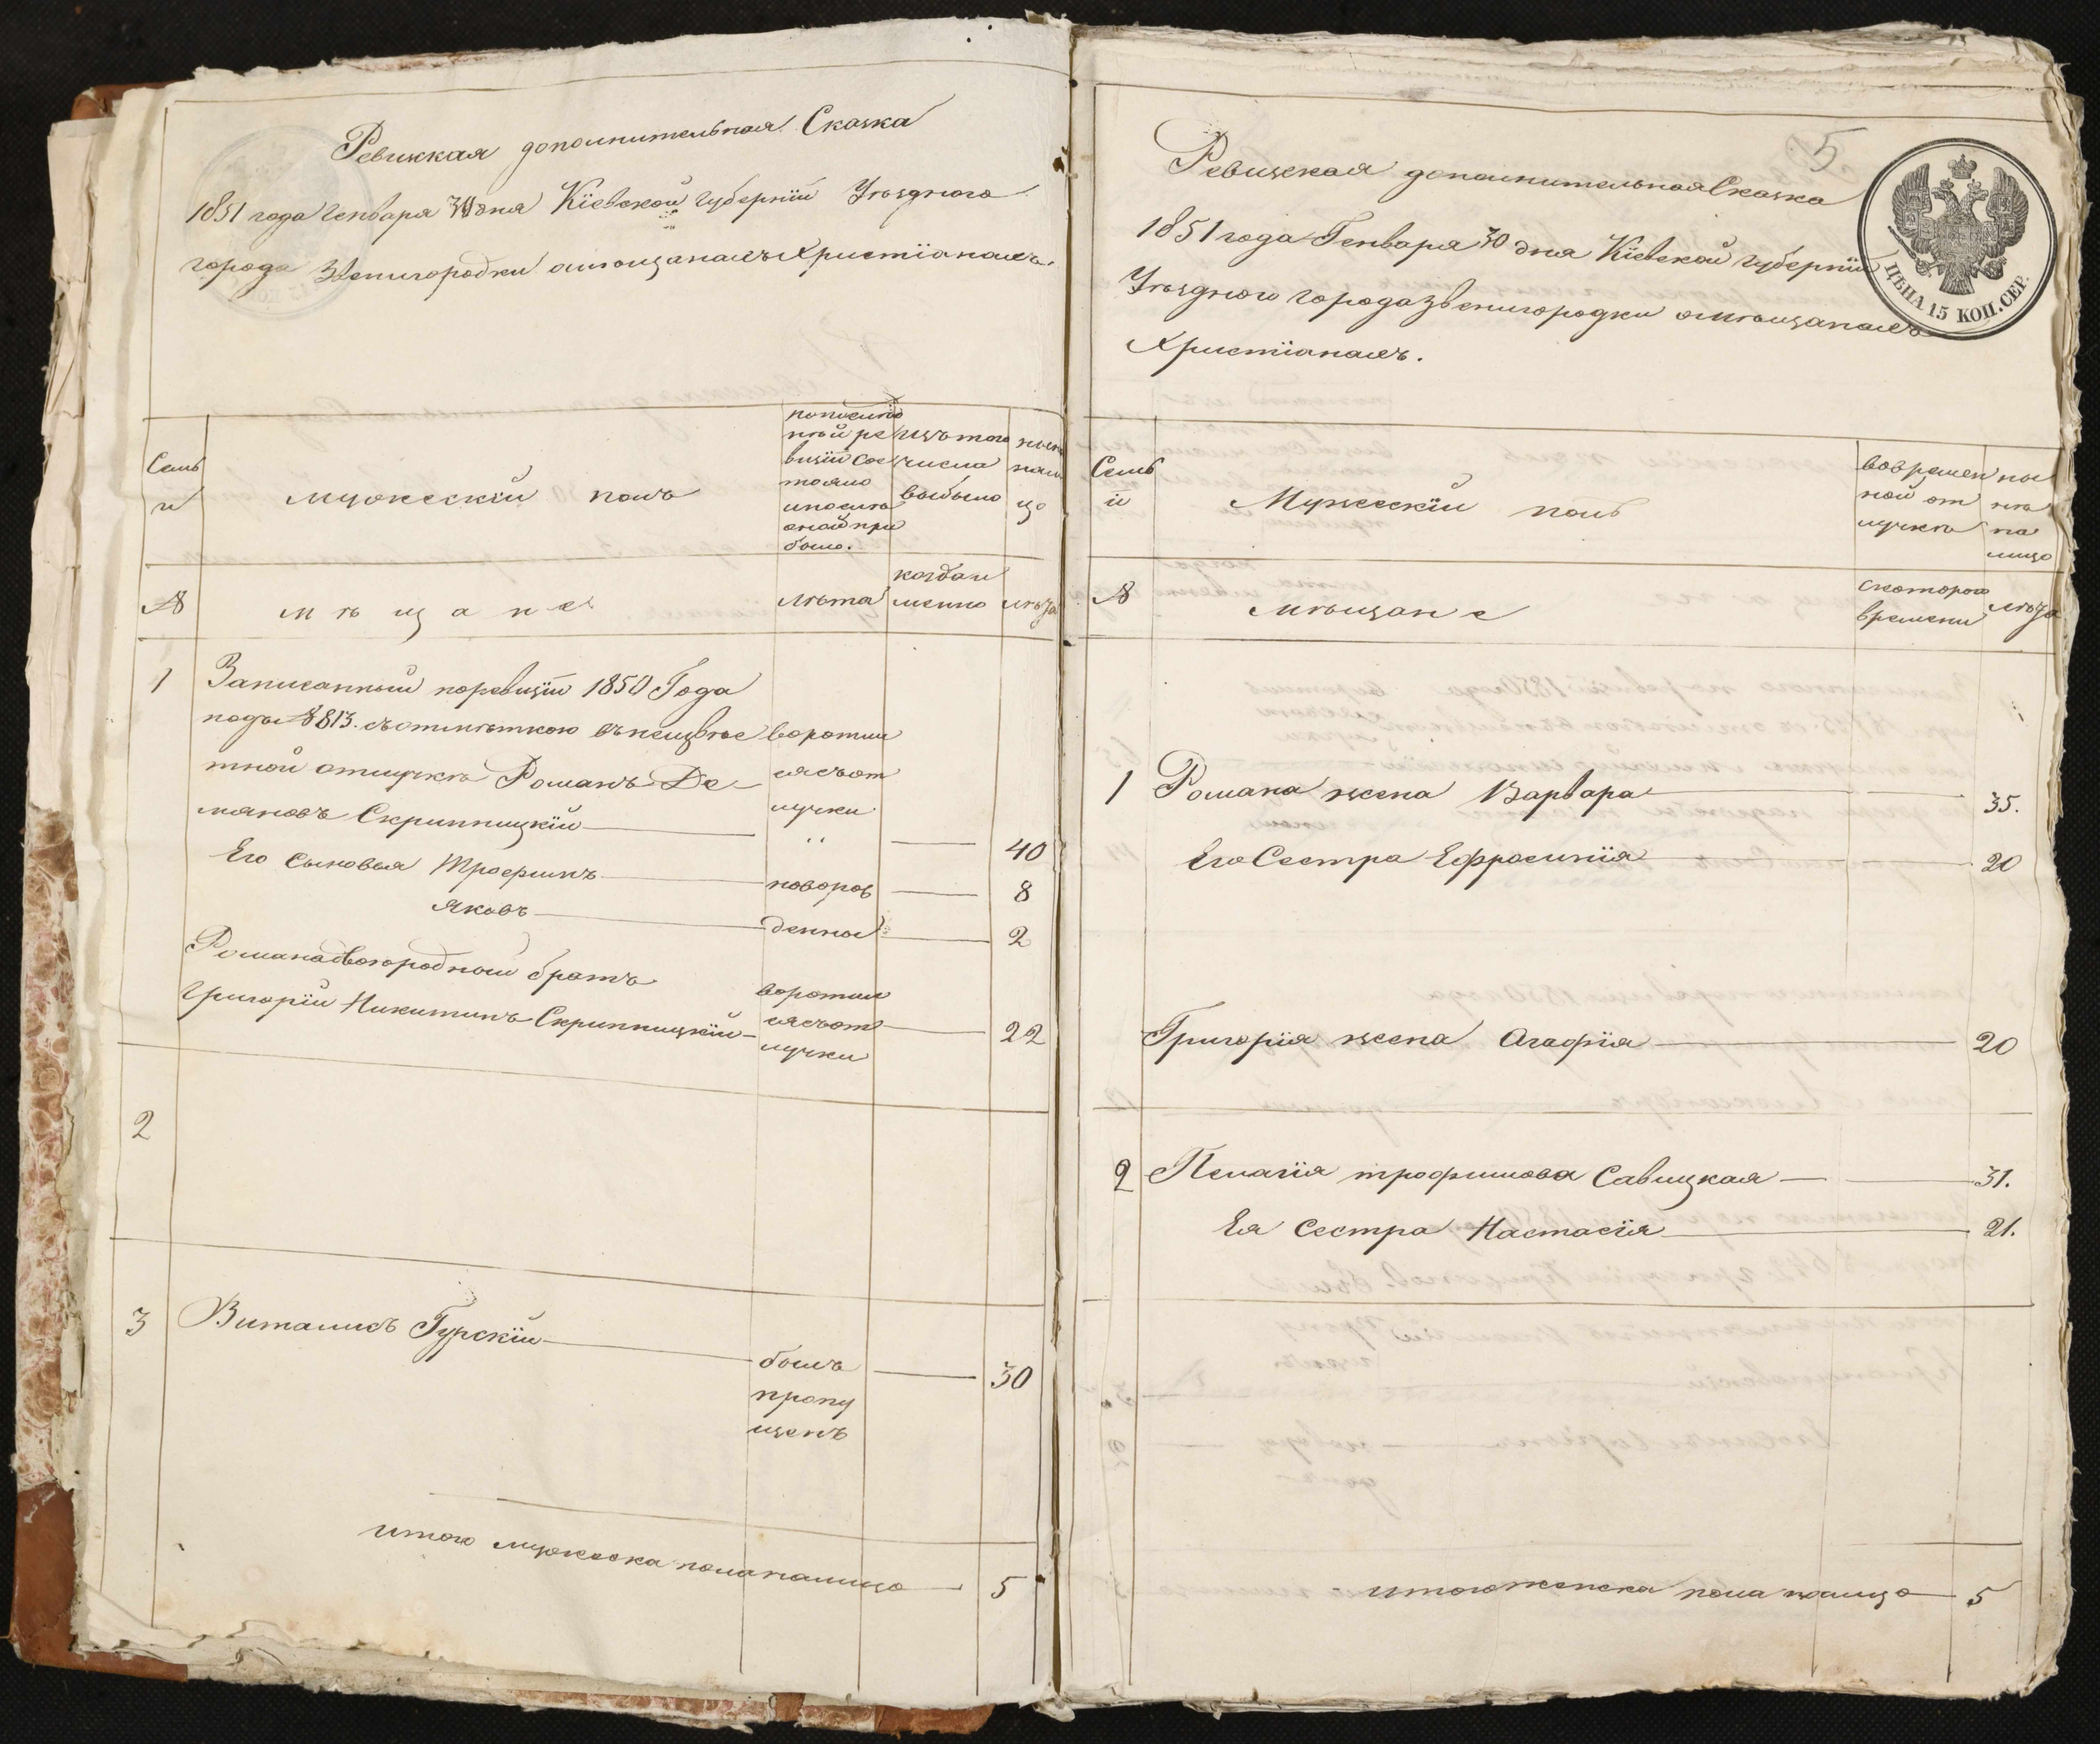 Ревизская дополнительная Сказка
1851 года Генваря 30 дня Кіевской Губерніи Уѣзднаго
города Звенигородки омѣщанахъ Христіанахъ.
Семь
и
мужескій полъ
попослѣд
нѣй ре
визіи сос
тояло
ипослѣ
оной при
было.
изътого
числа
выбыло
нынѣ
нали
цо
№
мѣщане
лѣта
когдаи
менно
лѣта
1
Записанный поревизіи 1850 Года
подъ № 813. съотмѣткою въ неизвѣс
воротил
тной отлучкѣ Романъ Де
ся съот
мяновъ Скрипницкій
лучки
"
40
Его Сыновья Трофимъ
новорож
8
Яковъ
денны
2
Романа двоюродный братъ
воротил
Григорій Никитинъ Скрипницкій
ся съот
22
лучки
2
3
Виталисъ Гурскій
былъ
30
пропу
щенъ
итого мужеска пола налицо
5
5
Ревизская дополнительная Сказка
1851 года Генваря 30 дня Кіевской Губерніи
Уѣзднаго города Звенигородки омѣщанахъ
Христіанахъ.
ЦѢНА 15 КОП. СЕР.
Семь
и
Мужескій полъ
вовремен
ной от
лучкѣ
ны
нѣ
на
лицо
№
мѣщане
скотораго
времени
лѣта
1
Романа жена Варвара
35.
Его Сестра Ефросинія
20
Григорія жена Агафія
20
2
Пелагія трофимова Савицкая
31.
Ея Сестра Настасія
21.
итого женска пола налицо
5